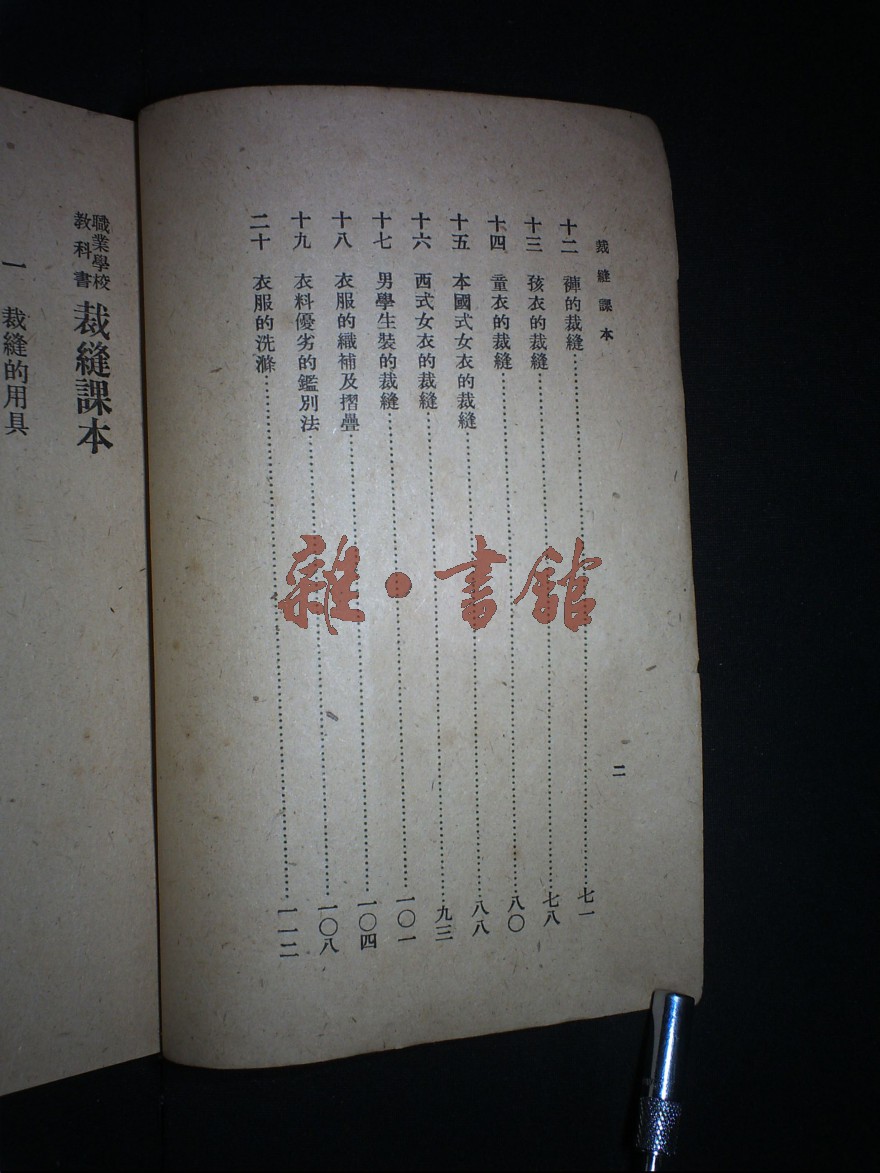 裁縫課本
二
十二　褲的裁縫……七一
十三　孩衣的裁縫……七八
十四　童衣的裁縫……八〇
十五　本國式女衣的裁縫……八八
十六　西式女衣的裁縫……九三
十七　男學生裝的裁縫……一〇一
十八　衣服的織補及摺疊……一〇四
十九　衣料優劣的鑑別法……一〇八
二十　衣服的洗滌……一一二
職業學校
教科書
裁縫課本
一　裁縫的用具
雜・書館